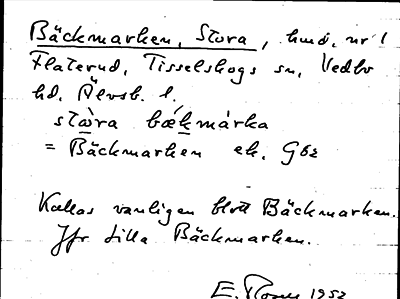 Bäckmarken, Stora, hmd. nr 1
Flaterud, Tisselskogs sn, Vedbo
hd, Älvsb. l.
stωra bækmárka
= Bäckmarken ek. Gbz
Kallas vanligen blott Bäckmarken.
Jfr Lilla Bäckmarken.
E. 1952